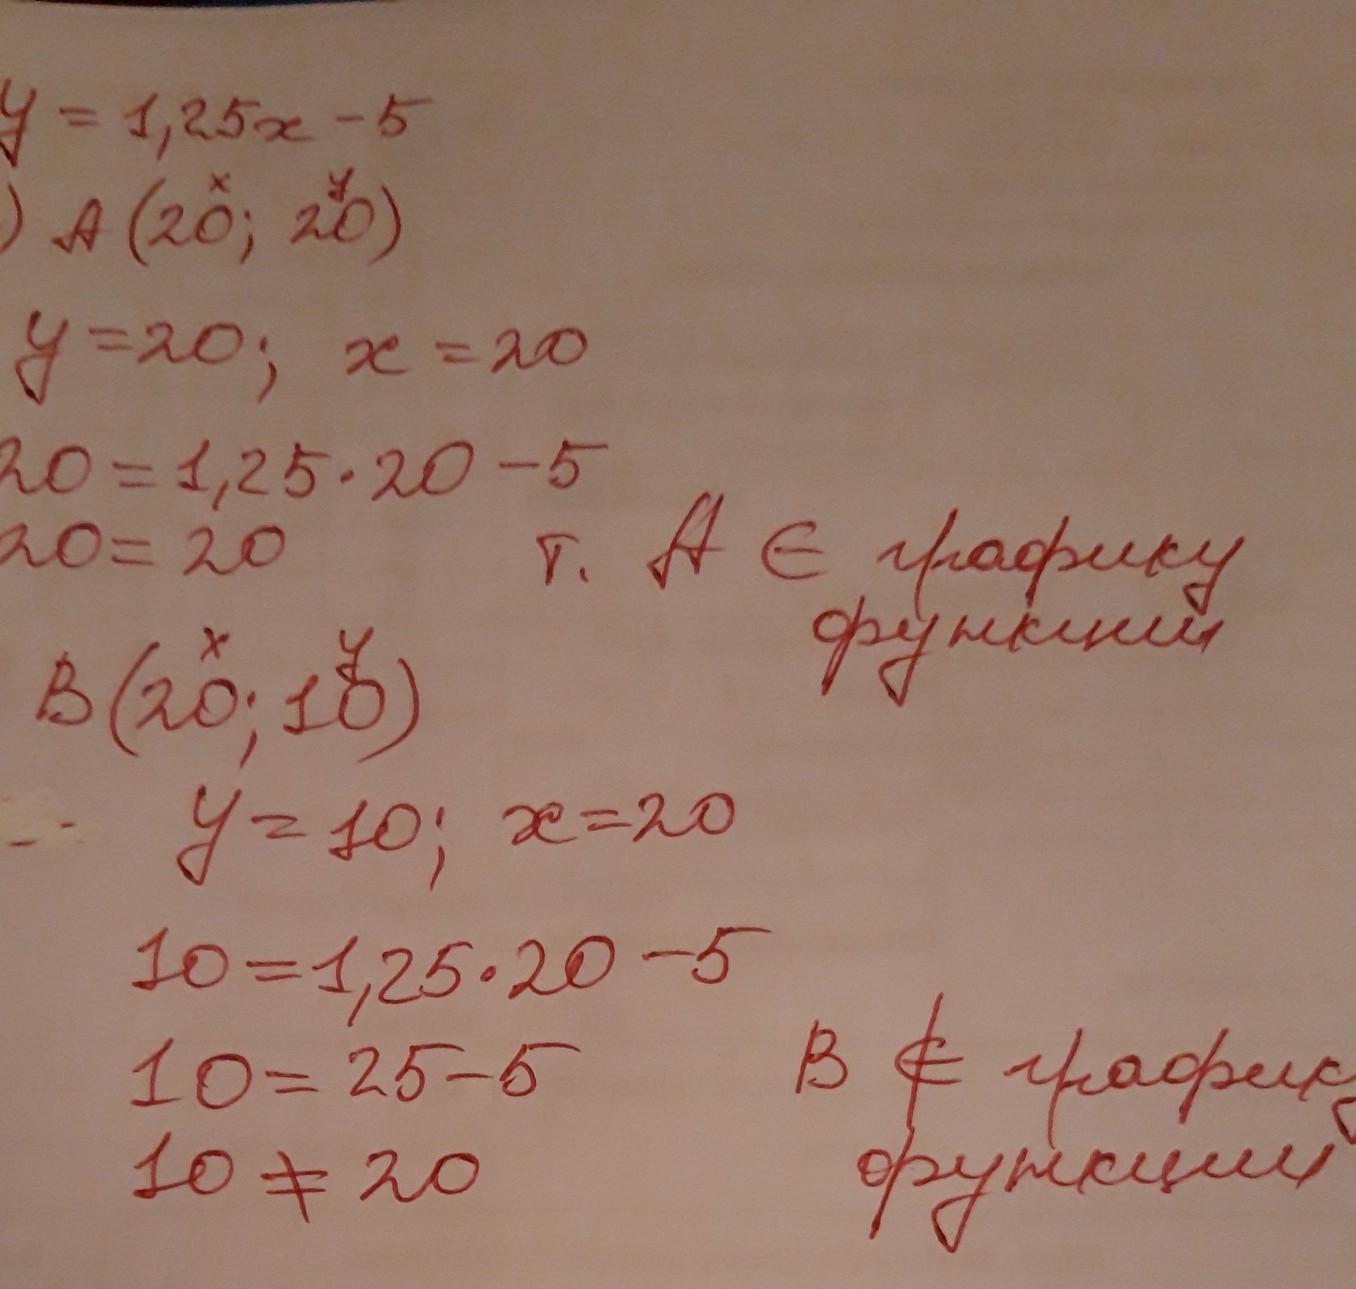 y = 1,25x - 5
) A (20; 20)
x y
y = 20; x = 20
20 = 1,25 · 20 - 5
20 = 20 т. A ∈ графику
функции
x y
B (20; 10)
y = 10; x = 20
10 = 1,25 · 20 - 5
10 = 25 - 5 B ∉ графику
10 ≠ 20 функции